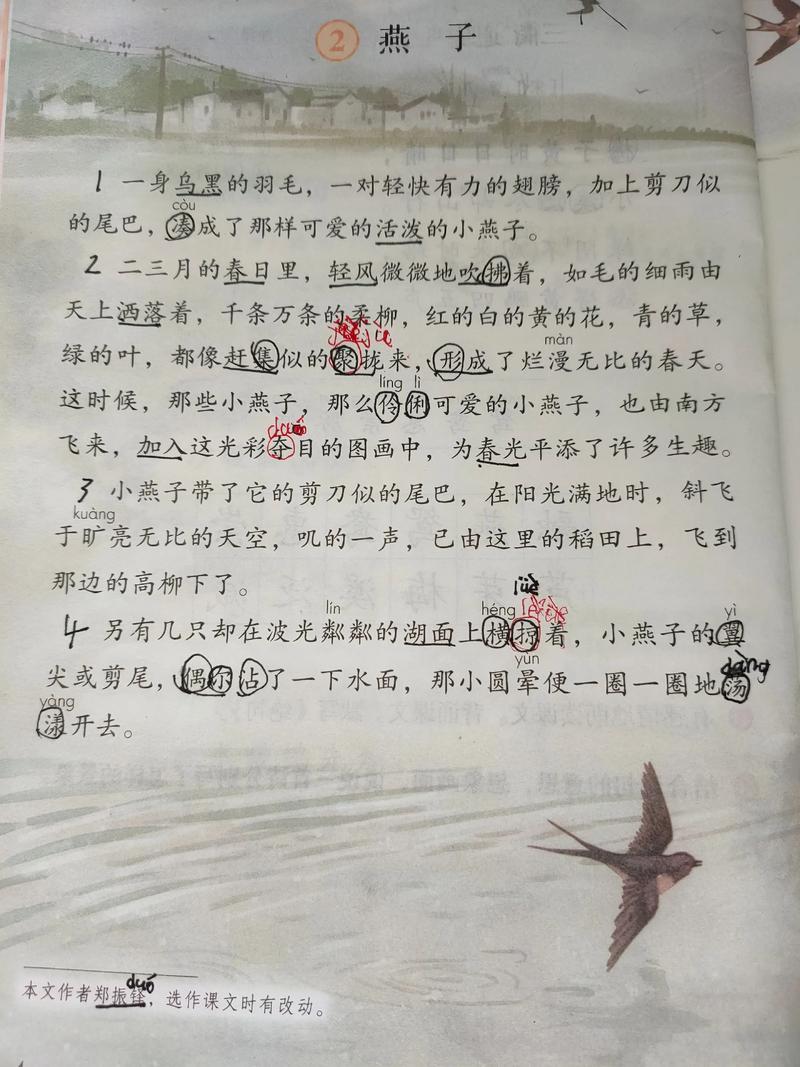 2 燕子
1 一身乌黑的羽毛，一对轻快有力的翅膀，加上剪刀似
còu
的尾巴，凑成了那样可爱的活泼的小燕子。
2 二三月的春日里，轻风微微地吹拂着，如毛的细雨由
天上洒落着，千条万条的柔柳，红的白的黄的花，青的草，
màn
绿的叶，都像赶集似的聚拢来，形成了烂漫无比的春天。
líng lì
这时候，那些小燕子，那么伶俐可爱的小燕子，也由南方
duó
飞来，加入这光彩夺目的图画中，为春光平添了许多生趣。
3 小燕子带了它的剪刀似的尾巴，在阳光满地时，斜飞
kuàng
于旷亮无比的天空，叽的一声，已由这里的稻田上，飞到
那边的高柳下了。
lüè
lín héng yì
4 另有几只却在波光粼粼的湖面上横掠着，小燕子的翼
yùn dàng
尖或剪尾，偶尔沾了一下水面，那小圆晕便一圈一圈地荡
yàng
漾开去。
duó
本文作者郑振铎，选作课文时有改动。